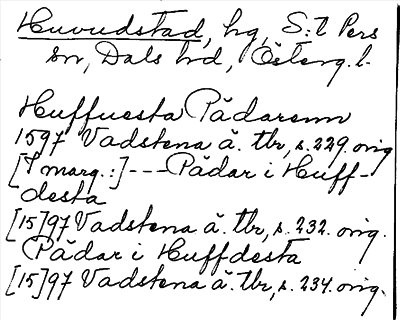 Huvudstad, hg, S:t Pers
sn, Dals hd, Österg.l.
Huffuesta Pädarenn
1597 Vadstena ä. tbr, s. 229. orig
[I marg.:] --- Pädar i Huff-
desta
[15]97 Vadstena ä. tbr, s. 232. orig.
Pädar i Huffdesta
[15]97 Vadstena ä. tbr, s. 234. orig.